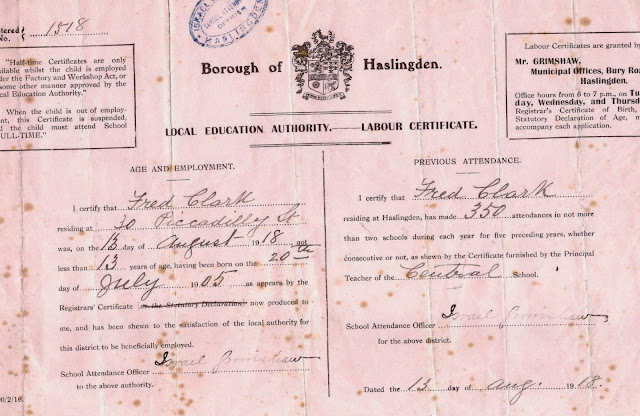 tered
No. 1518
"Half-time Certificates are only
ailable whilst the child is employed
der the Factory and Workshop Act, or
some other manner approved by the
cal Education Authority."
When the child is out of employ-
ent, this Certificate is suspended,
d the child must attend School
ULL-TIME."
HASLINGDEN
Borough of Haslingden.
LOCAL EDUCATION AUTHORITY.—LABOUR CERTIFICATE.
Labour Certificates are granted by
Mr. GRIMSHAW,
Municipal Offices, Bury Ro
Haslingden.
Office hours from 6 to 7 p.m., on Tu
day, Wednesday, and Thursd
Registrar's Certificate of Birth,
Statutory Declaration of Age, m
accompany each application.
AGE AND EMPLOYMENT.
I certify that Fred Clark
residing at 30 Piccadilly St
was, on the 13 day of August 1918 not
less than 13 years of age, having been born on the 20th
day of July 1905 as appears by the
Registrars' Certificate (or the Statutory Declaration) now produced to
me, and has been shewn to the satisfaction of the local authority for
this district to be beneficially employed.
Israel Grimshaw
School Attendance Officer
to the above authority.
PREVIOUS ATTENDANCE.
I certify that Fred Clark
residing at Haslingden, has made 350 attendances in not more
than two schools during each year for five preceding years, whether
consecutive or not, as shewn by the Certificate furnished by the Principal
Teacher of the Central School.
Israel Grimshaw
School Attendance Officer
for the above district.
Dated the 13 day of Aug. 1918.
0/2/16.